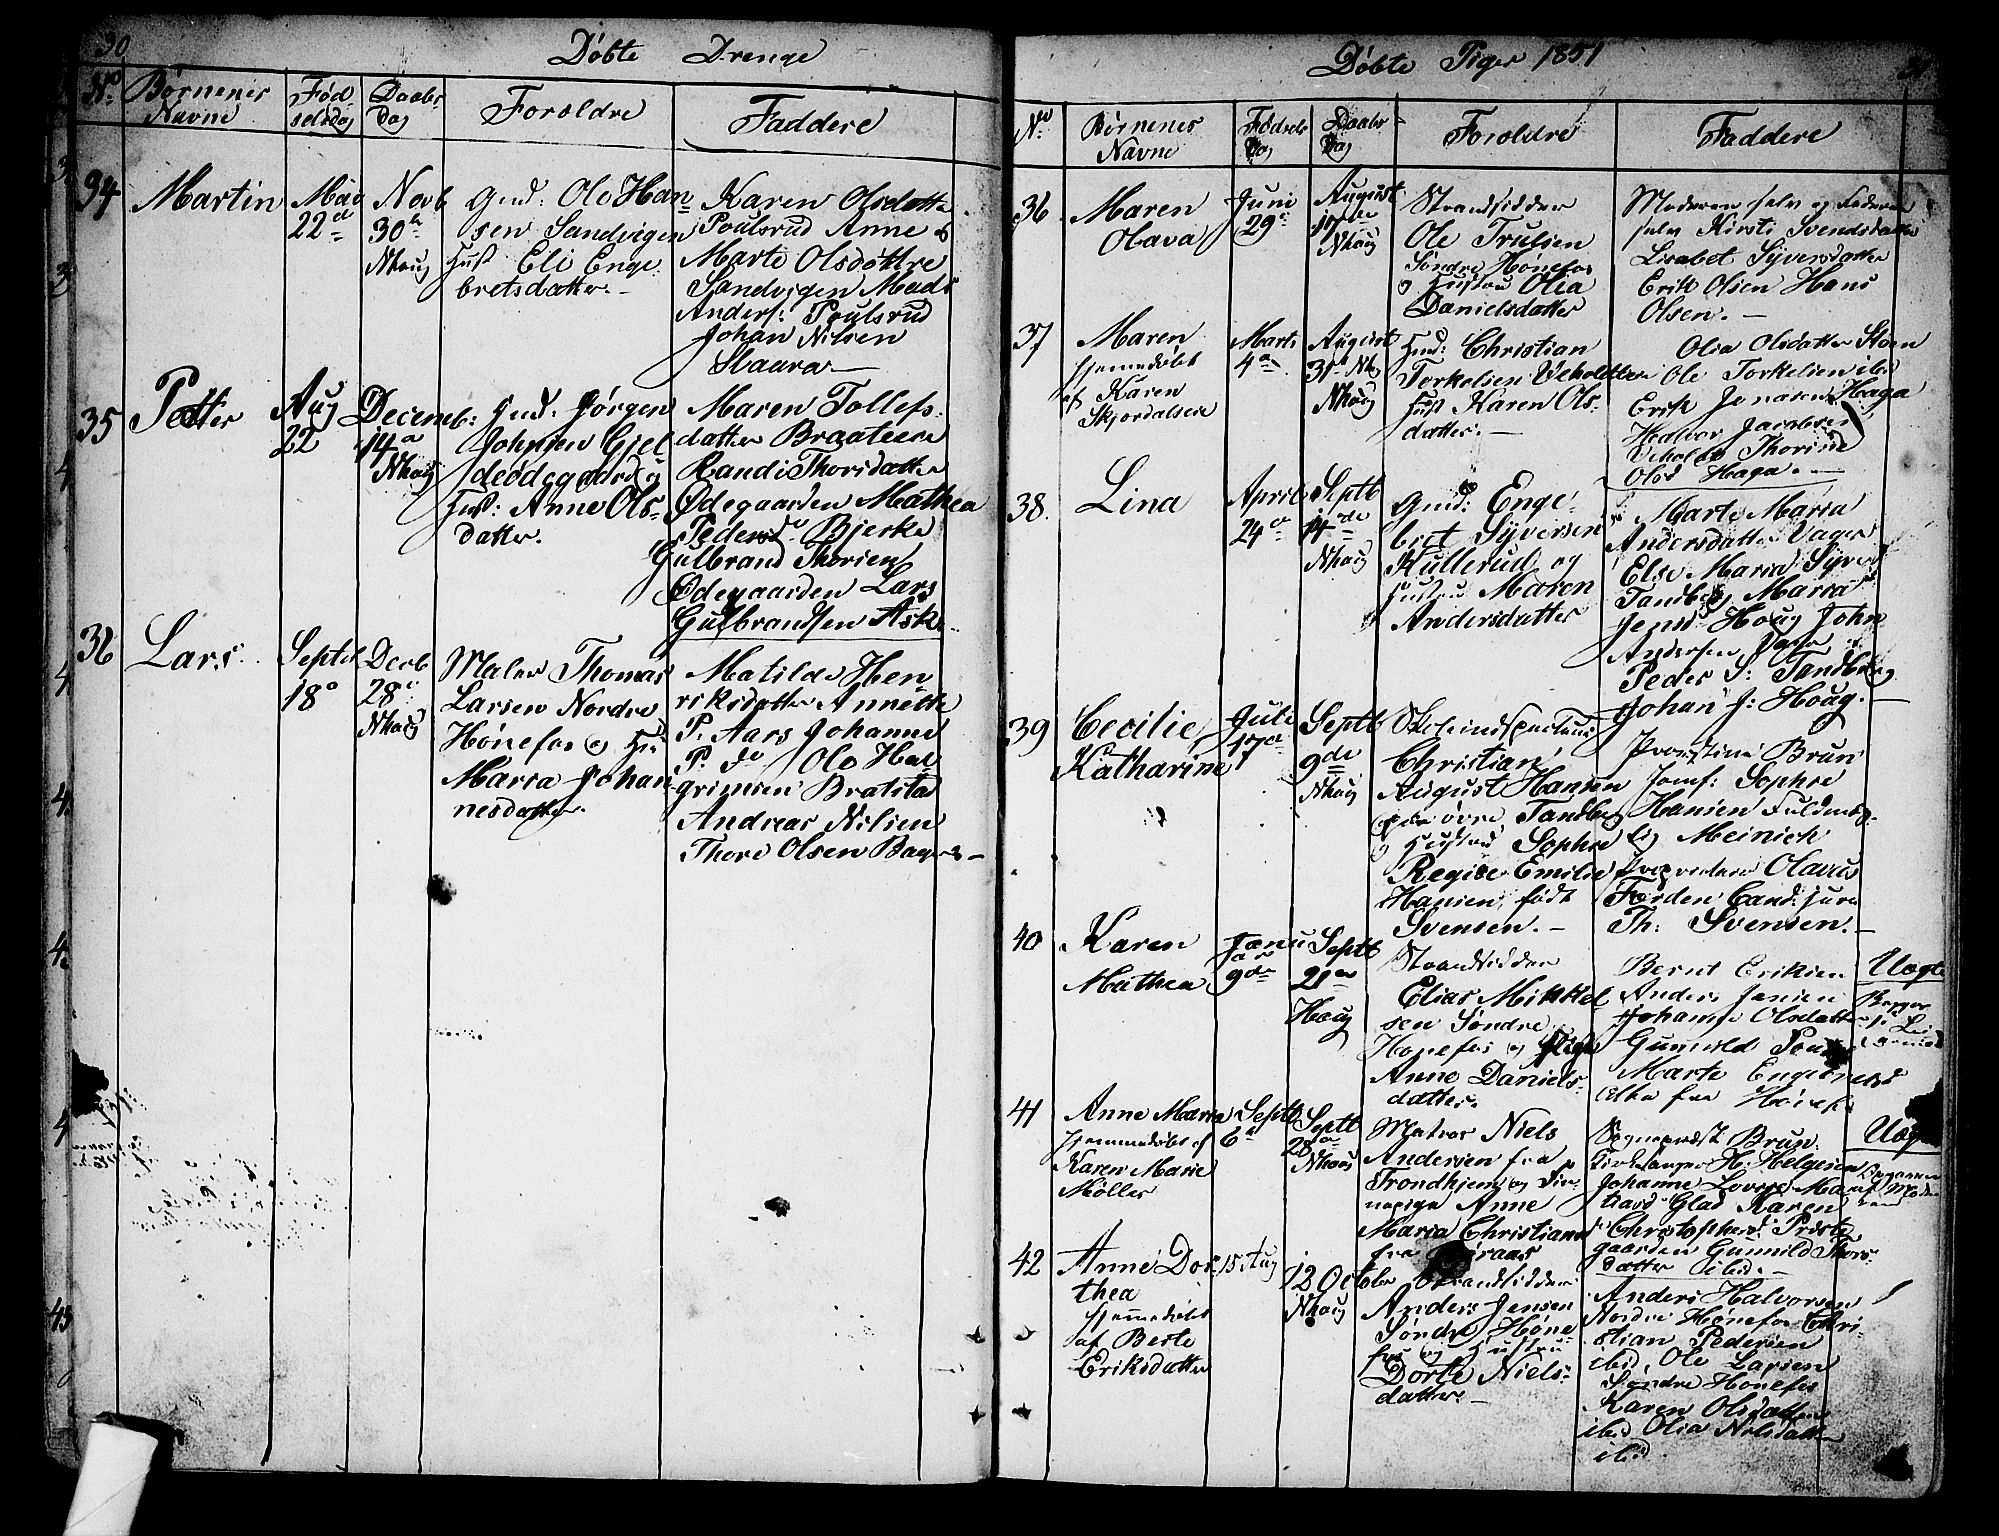 30
Døbte Drenge
No Børnenes Navne
Fødselsdag
Daabsdag
Forældre
Faddere
34 Martin
Mai 22de
Novb 30te Nhoug
Gmd: Ole Han=
sen Sandvigen
Hust Eli Enge
bretsdatter.
Karen Olsdatte
Poulsrud Anne &
Marte Olsdøttre
Sandvigen Mads
Anders: Poulsrud
Johan Nilsen
Haura
35 Petter
Aug 22
Decemb: 14de Nhoug
Gmd: Jørgen
Johnsen Gjel
deødegaard og
Hust: Anne Ols=
datter.
Maren Tollefs
datter Braateern
Randi Thorsdatte
Ødegaarden Mathea
Pedersd Bjerke
Gulbrand Thorsen
Ødegaarden Lars
Gulbrandsen Ask
36 Lars
Septb 18de
Decb 28de Nhoug
Maler Thomas
Larsen Nordre
Hønefos og Hu
Maria Johan
nesdatter.
Matilde Hen
riksdatter Annette
P. Aars Johanne
P. do Ole Hal
grimsen Bratsta
Andreas Nilsen
Thore Olsen Bager
Døbte Piger 1851
31
No Børnenes Navne
Fødsels Dag
Daabs Dag
Forældre
Faddere
36 Maren
Olava
Juni 29de
August 17de Nhoug
Strandsidder
Ole Trulsen
Søndre Hønefos
og Hustru Olia
Danielsdatter
Moderen selv og Faderen
selv Kirsti Svendsdatter
Lisabet Syversdatter
Erik Olsen Hans
Olsen.
37 Maren
hjemmedøbt
af Karen
Skjordalsen
Marts 4de
August 31te Nhoug
Gmd: Christian
Torkelsen Veholt
Hust Karen Ols=
datter.
Olia Olsdatter Steen
Ole Torkelsen ibid
Erik Jonasen Haga
Halvor Jacobsen
Veholt Thorine
Olsd Haga.
38 Lina
April 24de
Septb 14de Nhoug
Gmd: Enge
bret Syversen
Hullerud og
Hustru Maren
Andersdatter
Marte Maria
Andersdatter Vager
Else Maria Syver
Tandberg Maria
Jensd Houg John
Andersen Vager
Peder S: Tandberg
Johan J: Houg.
39 Cecilie
Katharine
Juli 17de
Septb 9de Nhoug
Skoleinspecteur
Christian
August Hansen
øvre Tandberg
og Hustru Sophie
Regice Emilie
Hansen, født
Svensen.
Provstinde Brun
Jomf: Sophie
Hansen Fuldmæg=
tig Meinich
Proprietær Olavus
Forden Cand: jure
Th: Svensen.
40 Karen
Mathea
Januar 9de
Septb 21de Houg
Strandsidder
Elias Mikkel
sen Søndre
Hønefos og Pige
Anne Daniels=
datter.
Bernt Eriksen
Anders Jensen
Johanne Olsdatter
Gunnild
Marte Engebretsd
alle fra Hønefos
Uægte
41 Anne Maria
hjemmedøbt af
Karen Marie
Møller
Septb 6te
Septb 28de Nhoug
Matros Niels
Andersen fra
Trondhjem og Pi=
nepige Anne
Maria Christiansd
fra Røraas
Sogneprest Brun
Kirkesanger H: Helgesen
Johanne Lovise Ma
tiasd Glad Karen
Christophersd Preste
gaarden Gunnild Thors
datter ibid.
Uægte
42 Anne Dor=
thea
hjemmedøbt
af Berte
Eriksdatter
15 Aug
12 October Nhoug
Strandsidder
Anders Jensen
Søndre Høne
fos og Hustru
Dorte Niels=
datter.
Anders Halvorsen
Nordre Hønefos Chri=
stian Pedersen
ibid, Ole Larsen
Søndre Hønefos
Karen Olsdatter
ibid Olia Nilsdatt
ibid.